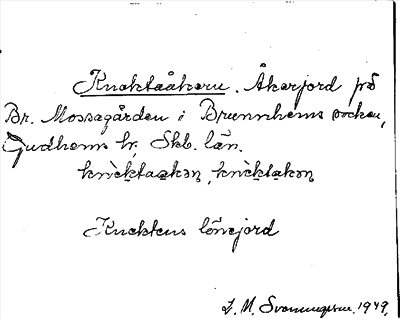 Knektaåkern. Åkerjord på
Br. Mossagården i Brunnhems socken,
Gudhems hd, Skb. län.
knèktaakən, knèktakən
Knektens lönejord
L. M. Svenungsson. 1949.